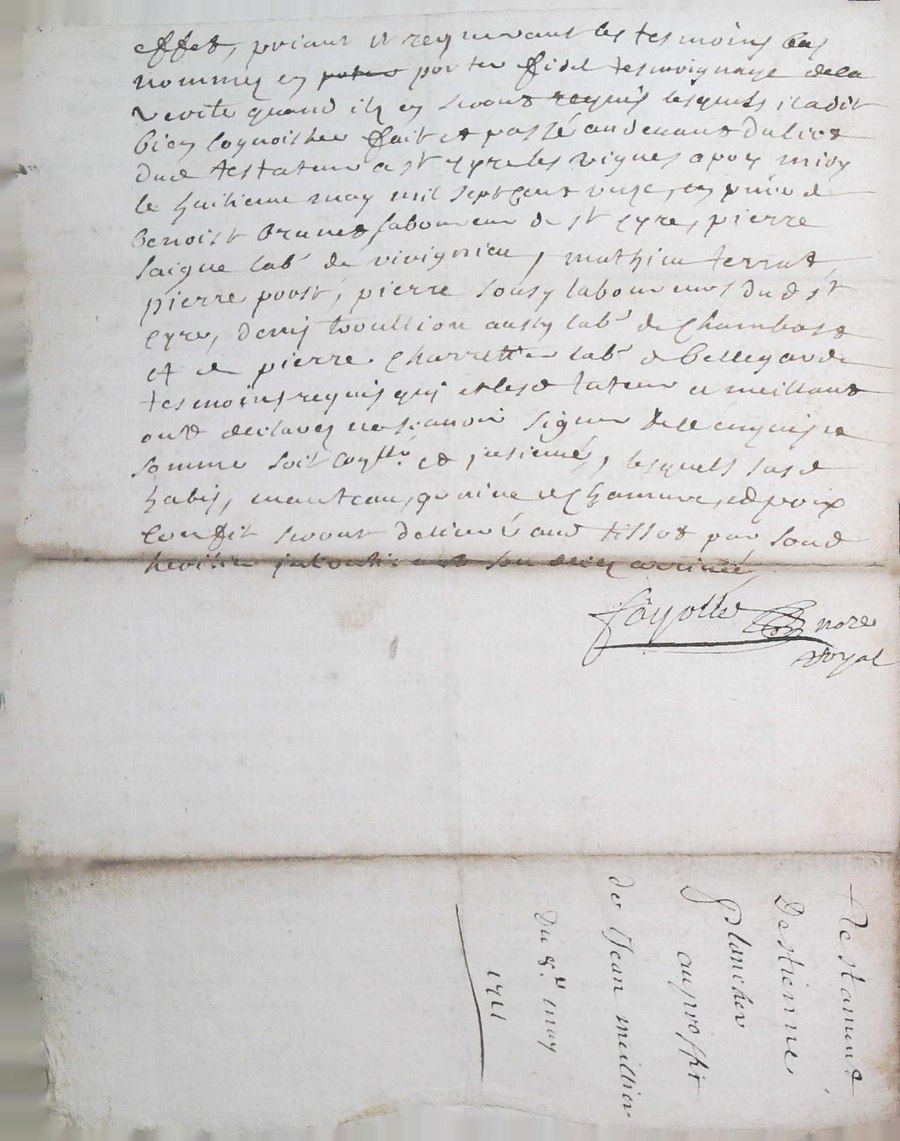 effet, priant et requerant les tesmoins bas
nommes en porter fidel tesmoignage de la
verite quand ilz en seront requis lesquels il a dit
bien cognoistre fait et passé au devant du lict
dud testateur a st cyre les vignes apres midy
le huitieme may mil sept cent unze, en pñce de
benoist brunet laboureur de st cyre, pierre
laigue lab.r de vivignieu, mathieu terrat,
pierre poost, pierre sousy laboureurs dud st
cyre, denis trouillion aussy lab.r de Chambost
et de pierre Charrettier lab.r de bellegarde
tesmoins requis qui et led tateur et meillant
ont declarez ne scavoir signer de ce enquis
somme soit et jusinué, lesquels susd
habis, manteau, de chanvre, et poix
seront delivré aud tillot par sond
heritier son deces arrivée
fayolle nore
royal
testament
Destienne
Plancher
auproffit
de Jean meillier
Du 8.e may
1711